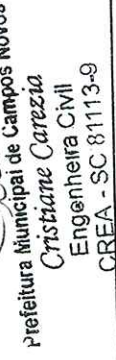 Prefeitura Municipal de Campos Novos
Cristiane Carezia
Engenheira Civil
CREA - SC 81113-9